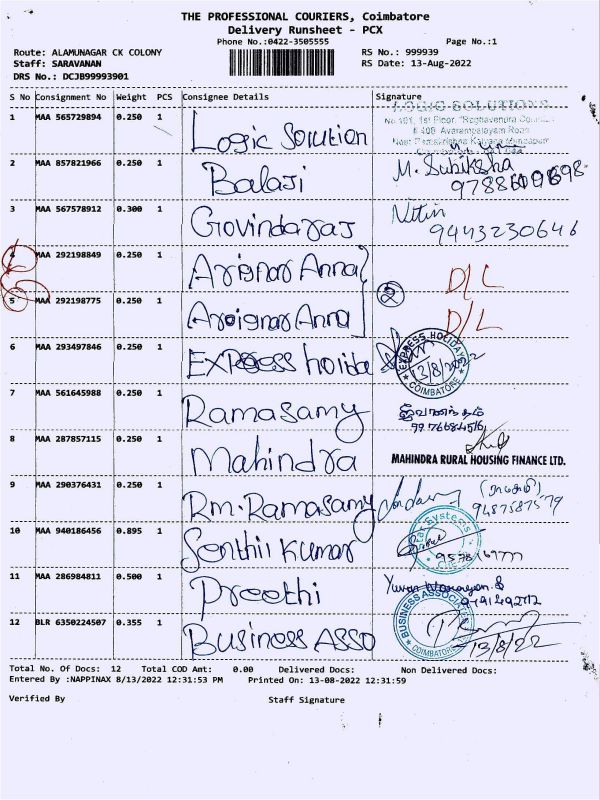 THE PROFESSIONAL COURIERS, Coimbatore
Delivery Runsheet - PCX
Phone No.:0422-3505555 Page No.:1
Route: ALAMUNAGAR CK COLONY RS No.: 999939
Staff: SARAVANAN RS Date: 13-Aug-2022
DRS No.: DCJB99993901
S No Consignment No Weight PCS Consignee Details Signature
1 MAA 565729894 0.250 1 Logic Solution
LOGIC SOLUTIONS
2 MAA 857821966 0.250 1 Balaji M. Subiksha
3 MAA 567578912 0.300 1 Govindaraj Nitin
9443230646
4 MAA 292198849 0.250 1 Arignar Anna D/L
2
5 MAA 292198775 0.250 1 Areignar Anna D/L
6 MAA 293497846 0.250 1 Express holida
EXPRESS HOLIDAYS
13/8/2022
COIMBATORE
7 MAA 561645988 0.250 1 Ramasamy
8 MAA 287857115 0.250 1 Mahindra
MAHINDRA RURAL HOUSING FINANCE LTD.
9 MAA 290376431 0.250 1 Rm. Ramasamy
9487587579
10 MAA 940186456 0.895 1 Senthil Kumar
Systems
11 MAA 286984811 0.500 1 Preethi
12 BLR 6350224507 0.355 1 Business Asso
BUSINESS ASSOCIATES
COIMBATORE
13/8/22
Total No. Of Docs: 12 Total COD Amt: 0.00 Delivered Docs: Non Delivered Docs:
Entered By :NAPPINAX 8/13/2022 12:31:53 PM Printed On: 13-08-2022 12:31:59
Verified By Staff Signature